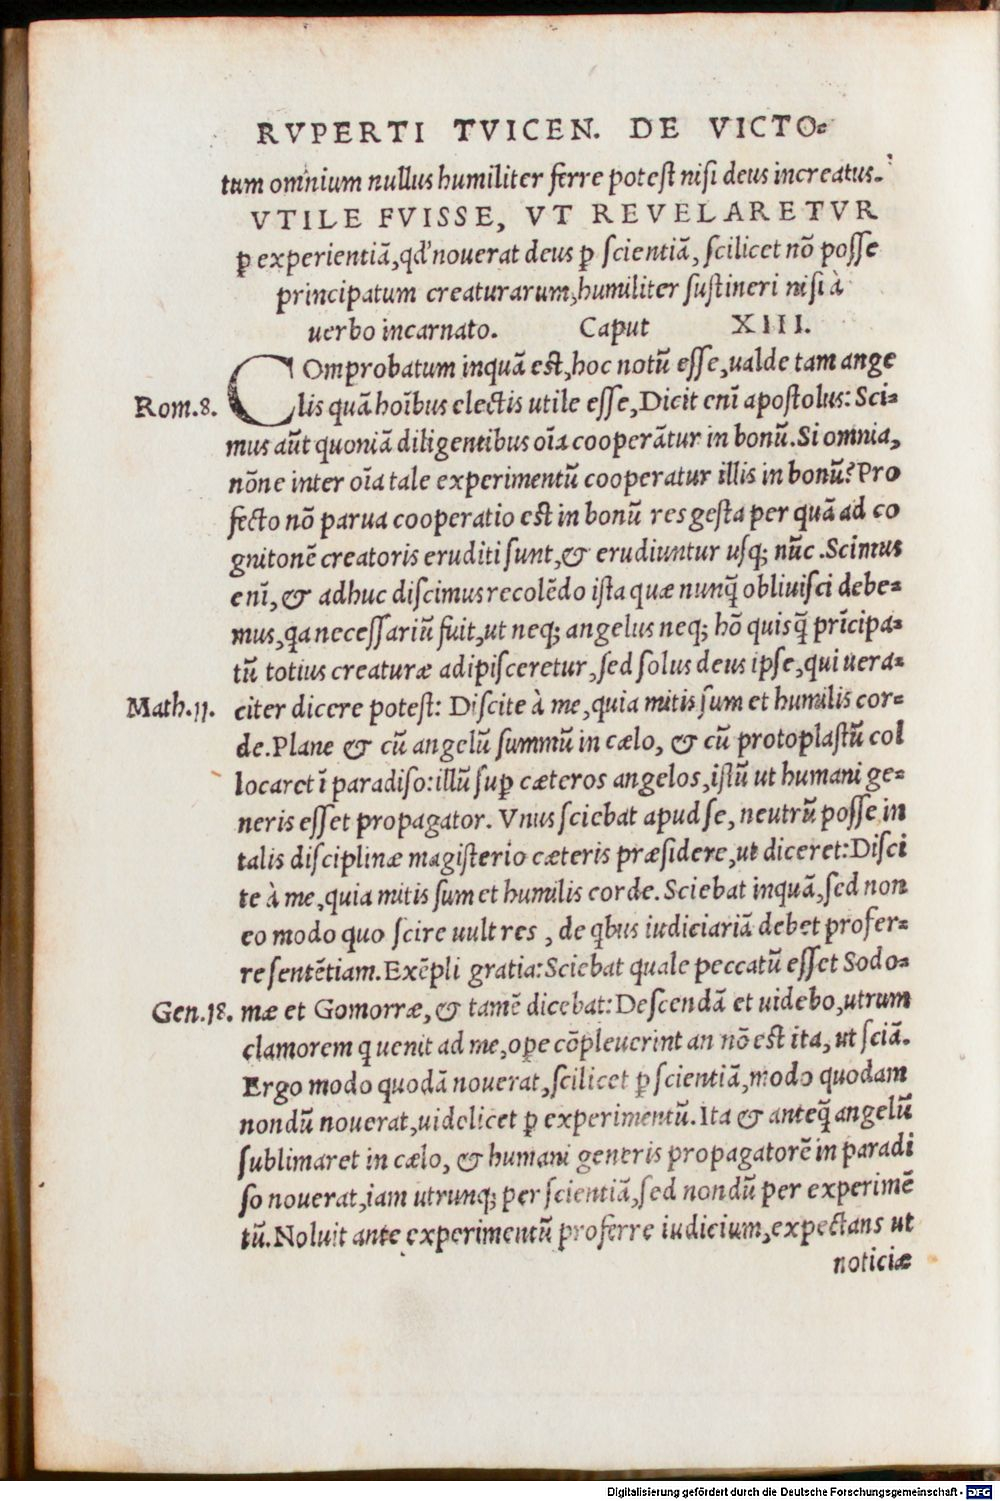 RVPERTI TVICEN. DE VICTO-
tum omnium nullus humiliter ferre potest nisi deus increatus.
VTILE FVISSE, VT REVELARETVR
ꝑ experientiã, qđ nouerat deus ꝑ scientiã, scilicet nõ posse
principatum creaturarum, humiliter sustineri nisi à
uerbo incarnato. Caput XIII.
COmprobatum inquã est, hoc notũ esse, ualde tam ange
Rom.8. lis quã hoĩbus electis utile esse, Dicit enĩ apostolus: Sci-
mus aũt quoniã diligentibus oĩa cooperãtur in bonũ. Si omnia,
nõne inter oĩa tale experimentũ cooperatur illis in bonũ? Pro
fecto nõ parua cooperatio est in bonũ res gesta per quã ad co
gnitonẽ creatoris eruditi sunt, & erudiuntur usq; nũc. Scimus
enĩ, & adhuc discimus recolẽdo ista quæ nunq̃ obliuisci debe-
mus, qa necessariũ fuit, ut neq; angelus neq; hõ quisq̃ prĩcipa-
tũ totius creaturæ adipisceretur, sed solus deus ipse, qui uera-
Math.11. citer dicere potest: Discite à me, quia mitis sum et humilis cor-
de. Plane & cũ angelũ summũ in cælo, & cũ protoplastũ col
locaret ĩ paradiso: illũ suꝑ cæteros angelos, istũ ut humani ge-
neris esset propagator. Vnus sciebat apud se, neutrũ posse in
talis disciplinæ magisterio cæteris præsidere, ut diceret: Disci
te à me, quia mitis sum et humilis corde. Sciebat inquã, sed non
eo modo quo scire uult res, de qbus iudiciariã debet profer-
re sentẽtiam. Exẽpli gratia: Sciebat quale peccatũ esset Sodo-
Gen.18. mæ et Gomorræ, & tamẽ dicebat: Descendã et uidebo, utrum
clamorem q uenit ad me, oꝑe cõpleuerint an nõ est ita, ut sciã.
Ergo modo quodã nouerat, scilicet ꝑ scientiã, modo quodam
nondũ nouerat, uidelicet ꝑ experimentũ. Ita & anteq̃ angelũ
sublimaret in cælo, & humani generis propagatorẽ in paradi
so nouerat, iam utrunq; per scientiã, sed nondũ per experimẽ
tũ. Noluit ante experimentũ proferre iudicium, expectans ut
noticiæ
Digitalisierung gefördert durch die Deutsche Forschungsgemeinschaft - DFG